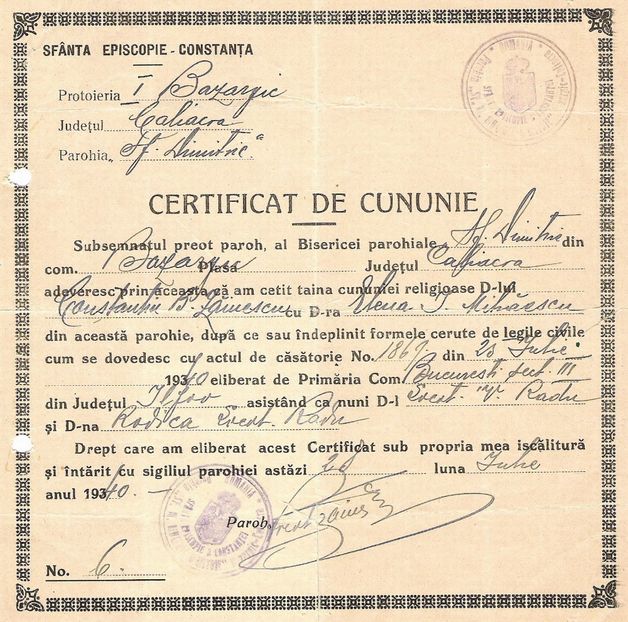 SFÂNTA EPISCOPIE - CONSTANȚA
Protoieria I Bazargic
Județul Caliacra
Parohia „Sf. Dimitrie"
CERTIFICAT DE CUNUNIE
Subsemnatul preot paroh, al Bisericei parohiale Sf. Dimitrie din
com. Bazargic Plasa Județul Caliacra
adeveresc prin aceasta că am cetit taina cununiei religioase D-lui
Constantin B. cu D-ra Elena T. Mihăescu
din această parohie, după ce sau îndeplinit formele cerute de legile civile
cum se dovedesc cu actul de căsătorie No. 1867 din 23 Iulie
1940 eliberat de Primăria Com. București Sect. III
din Județul Ilfov asistând ca nuni D-l V. Radu
și D-na Rodica Radu
Drept care am eliberat acest Certificat sub propria mea iscălitură
și întărit cu sigiliul parohiei astăzi 28 luna Iulie
anul 1940
Paroh,
No. 6